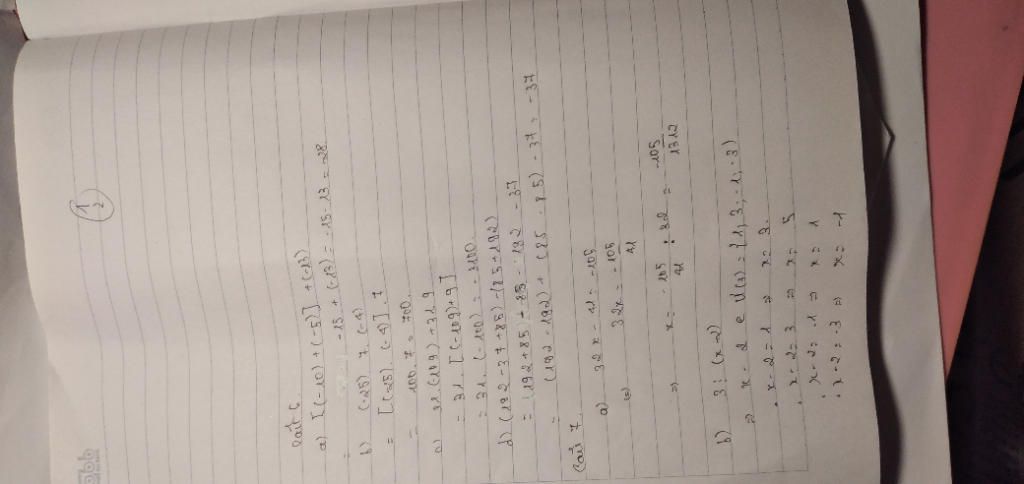 1/2
Bài 6
a) [(-10) + (-5)] + (-13)
= -15 + (-13) = -15 - 13 = -28
b) (-25) . 7 . (-4)
= [(-25) . (-4)] . 7
= 100 . 7 = 700.
c) 31 . (-109) + 31 . 9
= 31 . [(-109) + 9]
= 31 . (-100) = -3100.
d) (192 - 37 + 85) - (85 + 192)
= 192 + 85 - 85 - 192 - 37
= (192 - 192) + (85 - 85) - 37 = -37
Bài 7
a) 32x - 41 = -105
32x = -105/41
=> x = -105/41 : 32 = -105/1312
b) 3 ⋮ (x - 2)
=> x - 2 ∈ Ư(3) = {1; 3; -1; -3}
. x - 2 = 1 => x = 3.
. x - 2 = 3 => x = 5
. x - 2 = -1 => x = 1
. x - 2 = -3 => x = -1